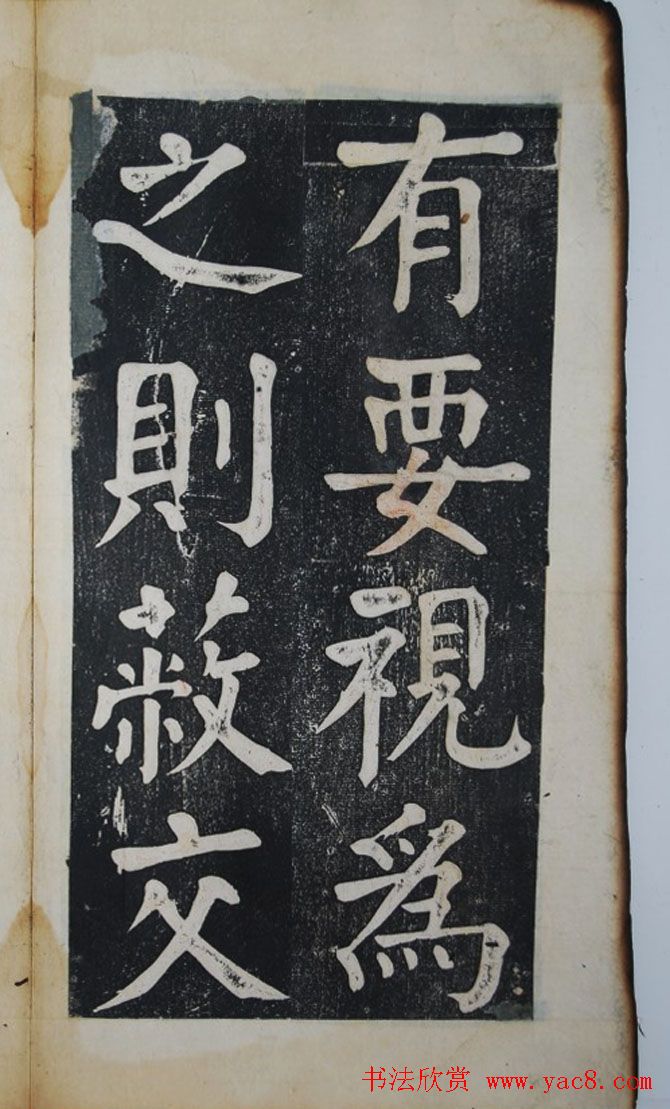 有要視為
之則蔽交
书法欣赏 www.yac8.com